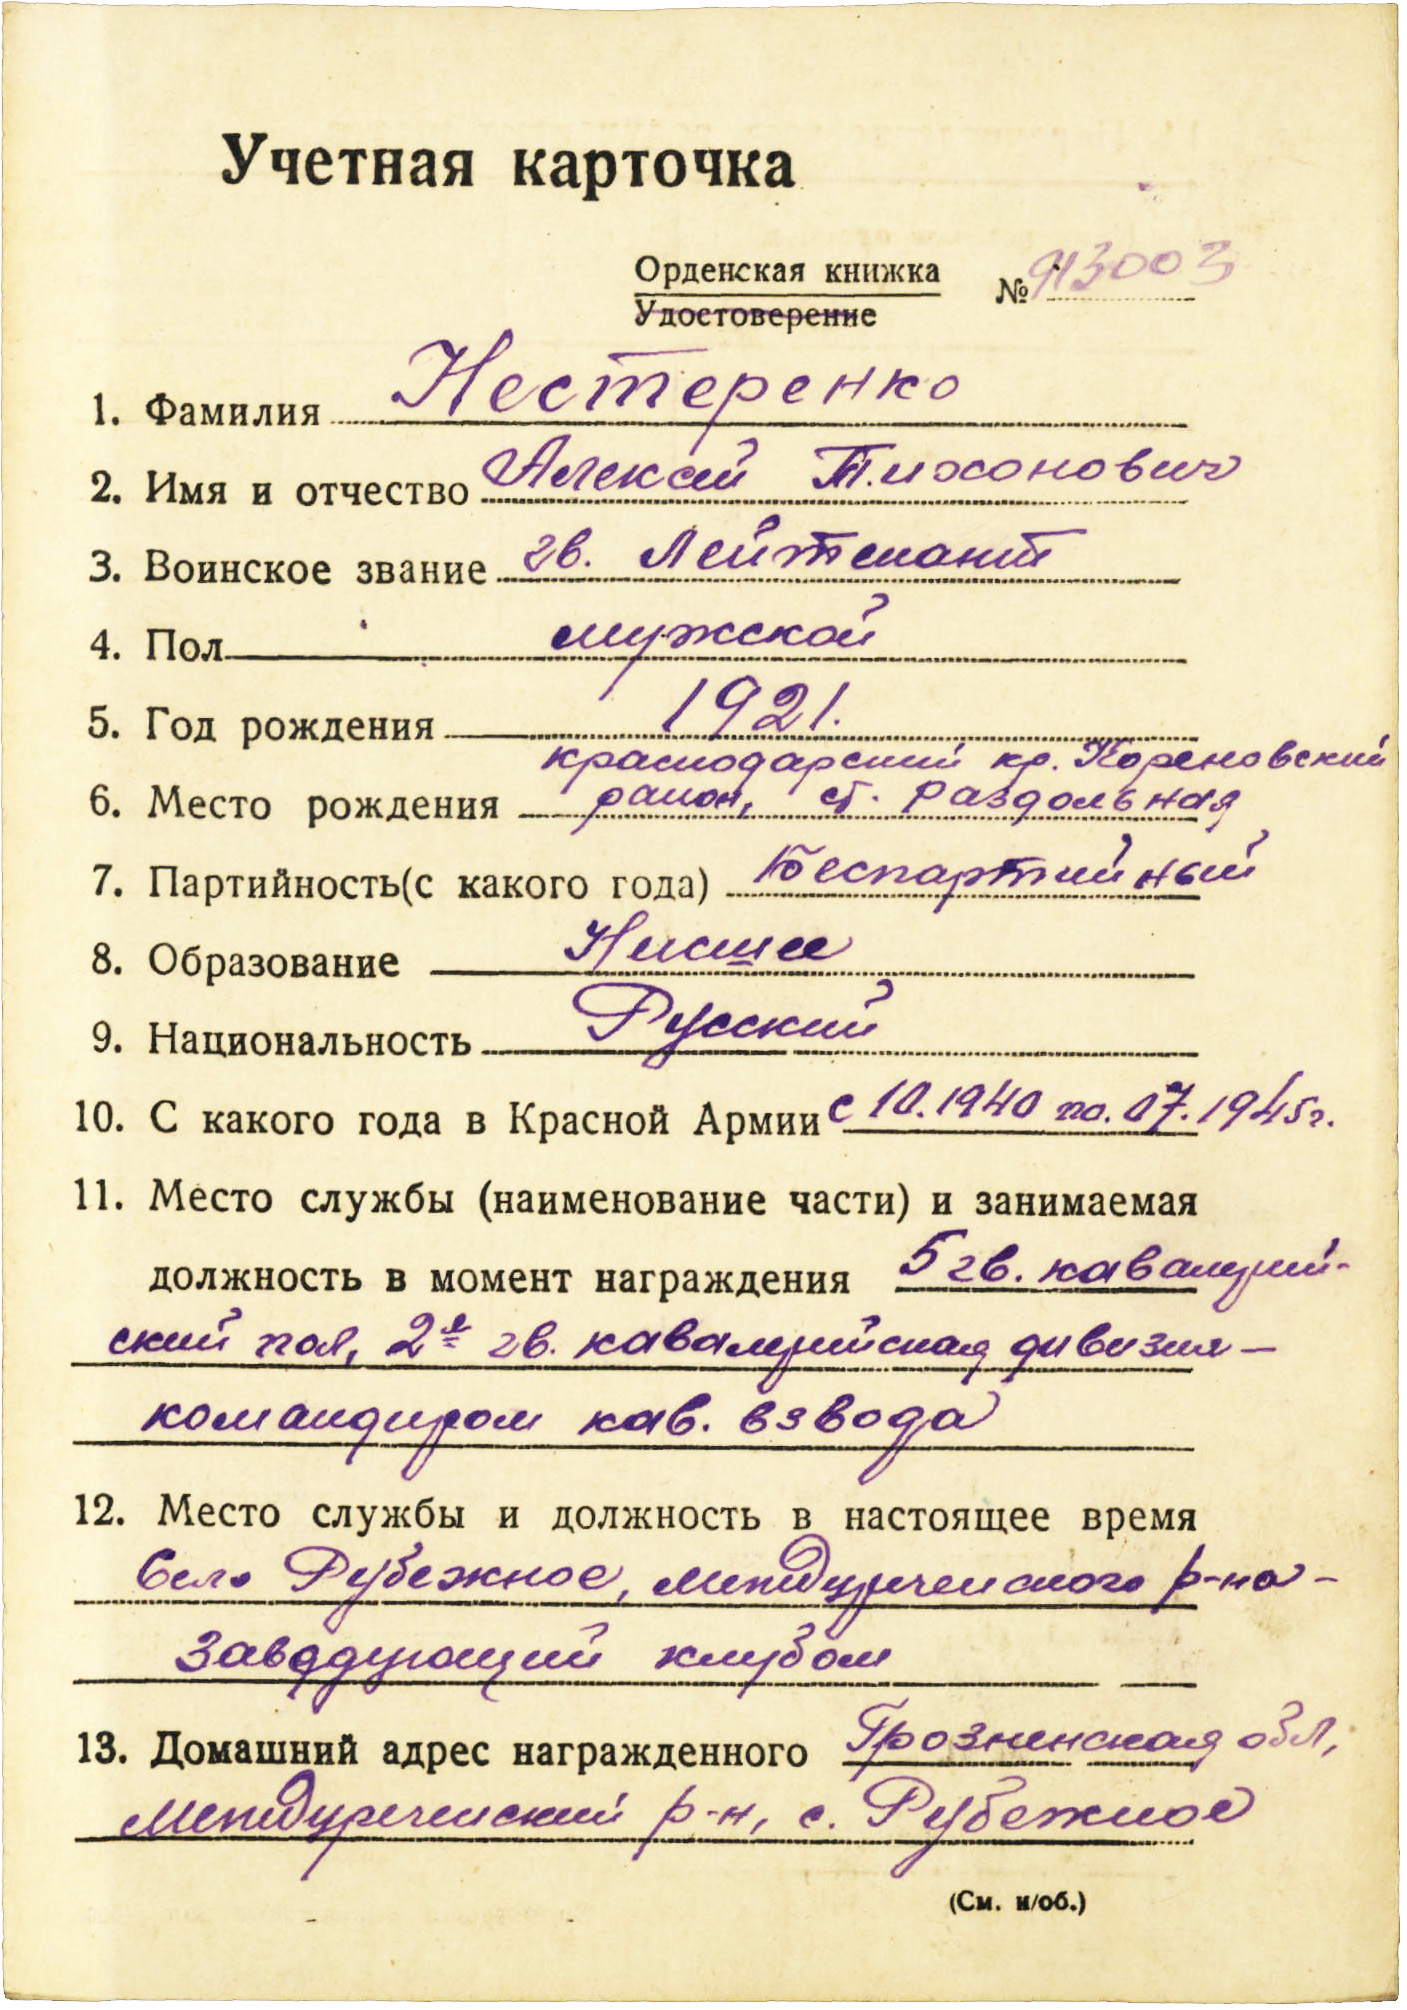 Учетная карточка
Орденская книжка № 913003
Удостоверение
Нестеренко
1. Фамилия
2. Имя и отчество Алексей Тихонович
3. Воинское звание гв. Лейтенант
4. Пол мужской
5. Год рождения 1921.
краснодарский кр. Кореновский
6. Место рождения район, ст. Раздольная
7. Партийность(с какого года) Беспартийный
8. Образование Нисшее
9. Национальность Русский
10. С какого года в Красной Армии с 10.1940 по. 07.1945г.
11. Место службы (наименование части) и занимаемая
должность в момент награждения 5 гв. кавалерий-
ский пол, 2я гв. кавалерийская дивизия –
командиром кав. взвода
12. Место службы и должность в настоящее время
Село Рубежное, Междуреченского р-на –
Заведующий клубом
13. Домашний адрес награжденного Грозненская обл,
Междуреченский р-н, с. Рубежное
(См. н/об.)